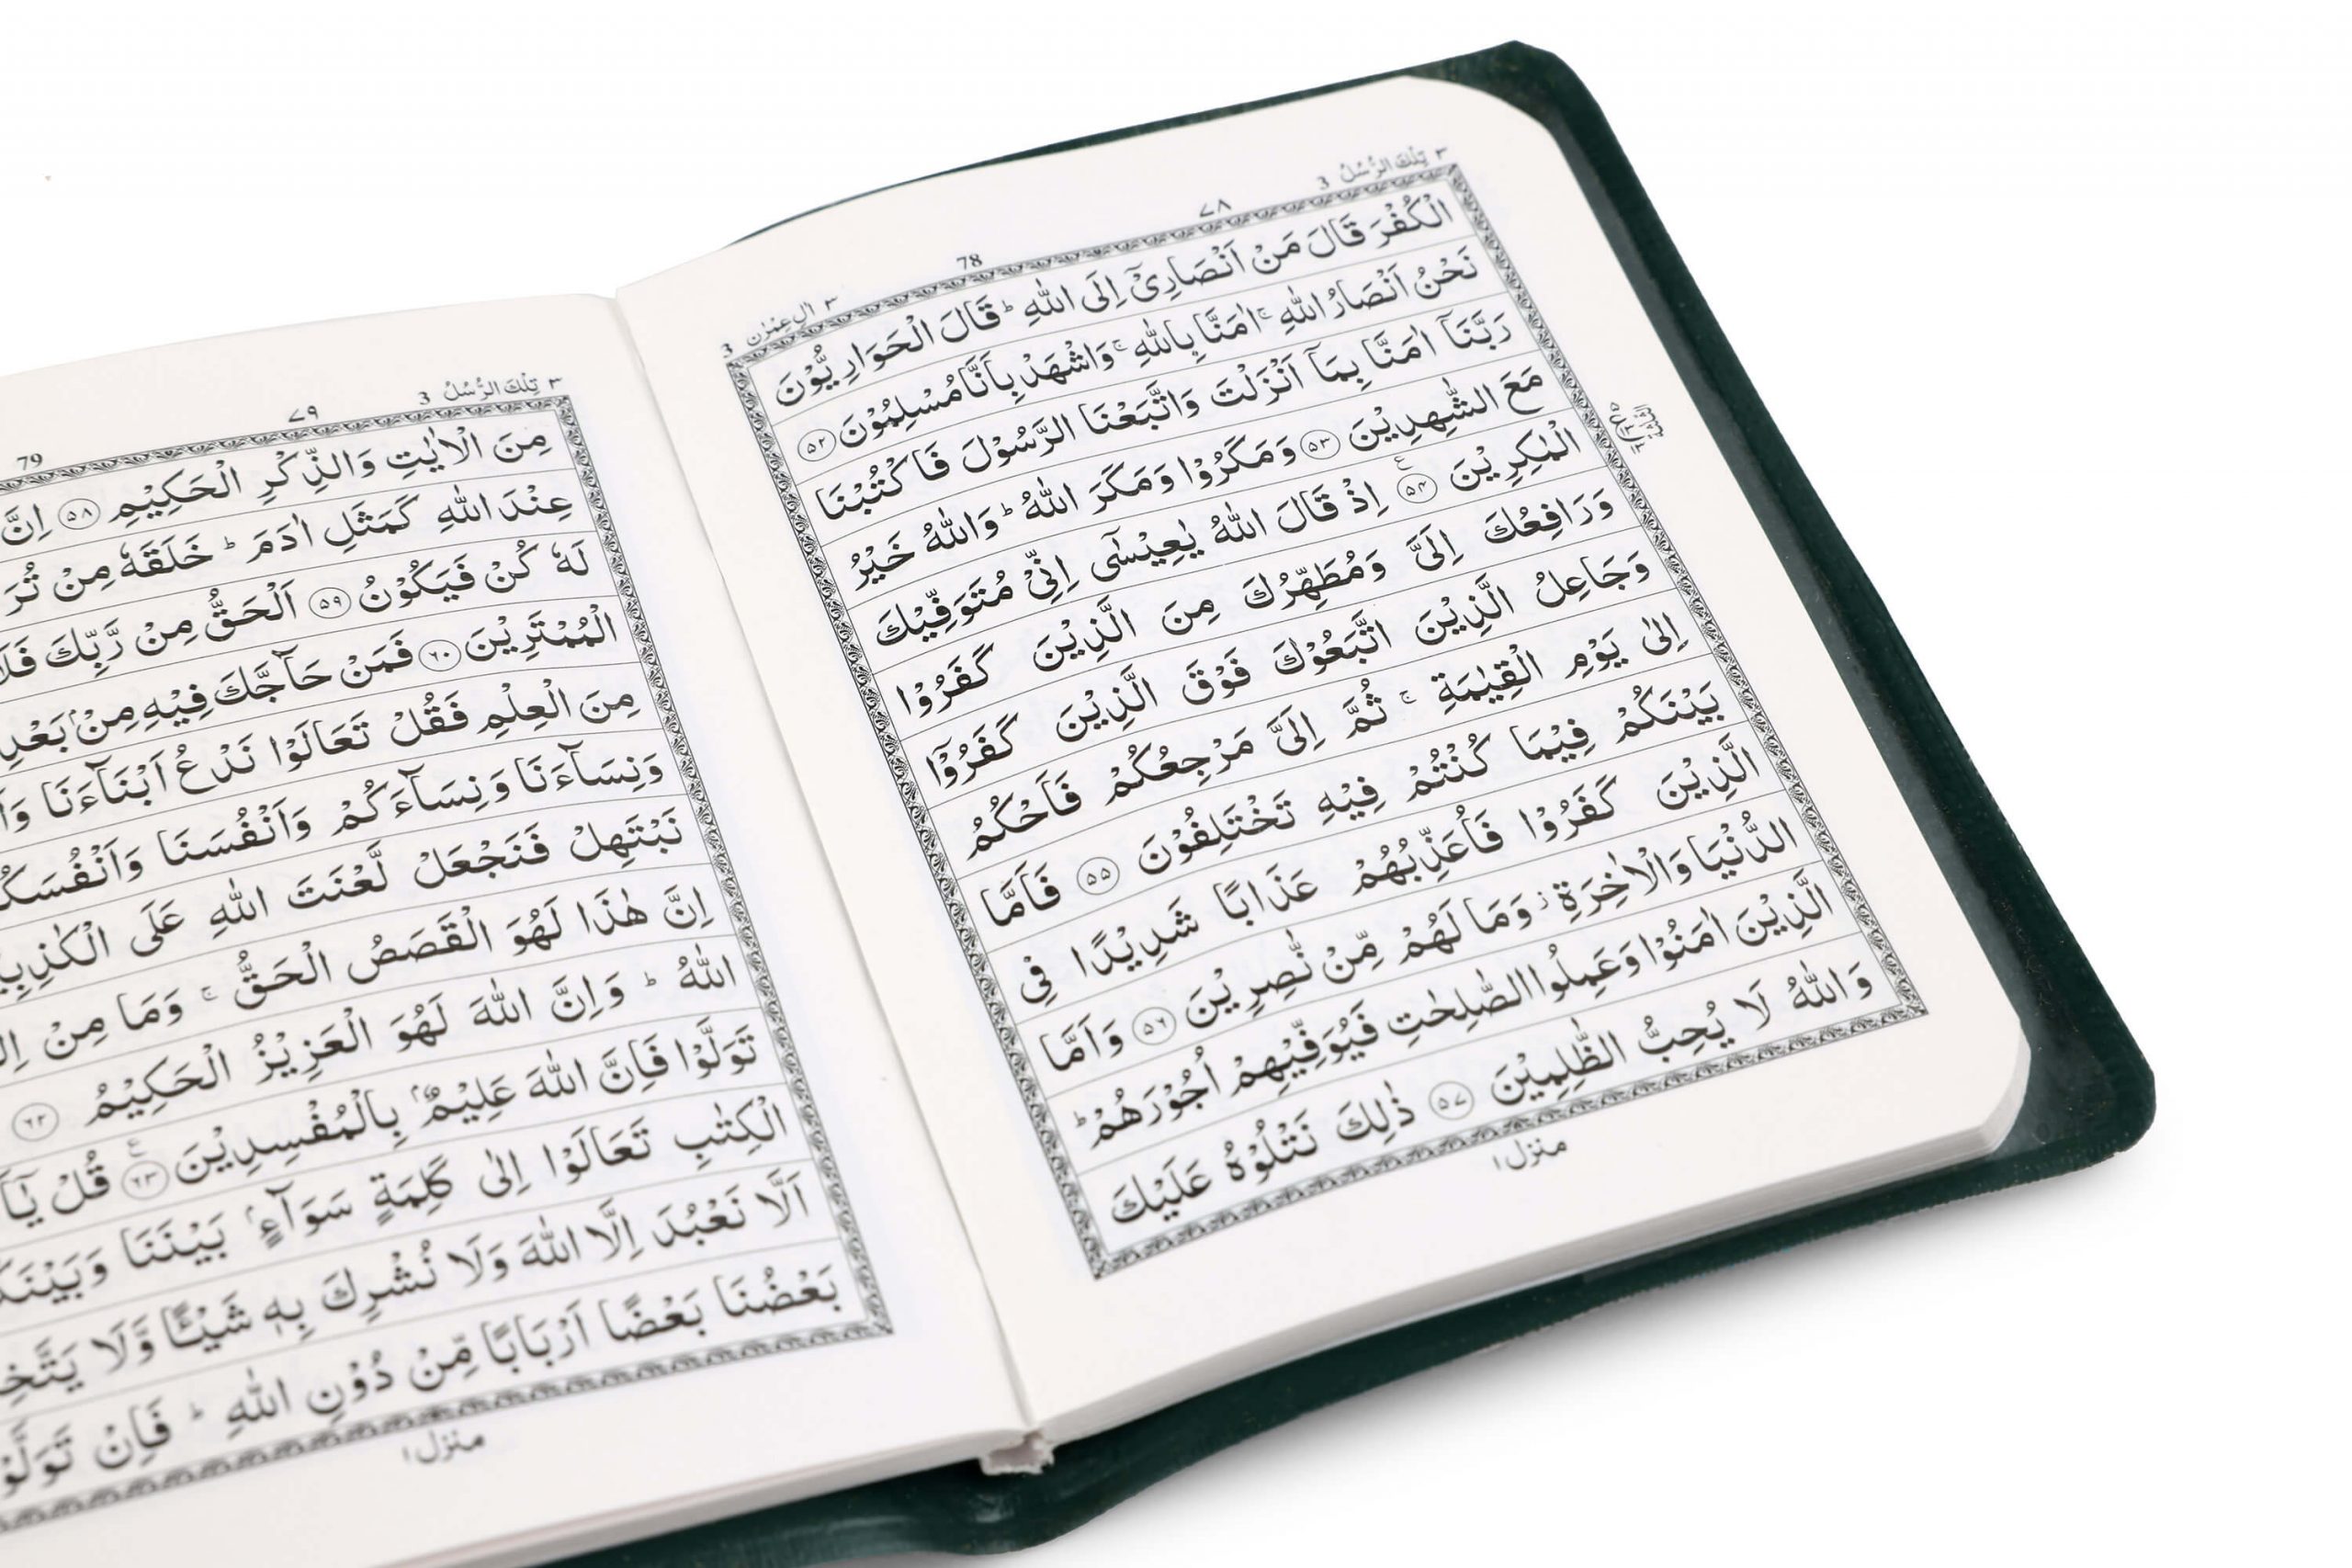 ٣ تِلْكَ الرُّسُلُ 3
٧٨
78
٣ اٰلِ عِمْرٰن 3
الْكُفْرَ قَالَ مَنْ اَنْصَارِیْۤ اِلَی اللّٰهِ ؕ قَالَ الْحَوَارِیُّوْنَ
نَحْنُ اَنْصَارُ اللّٰهِ ۚ اٰمَنَّا بِاللّٰهِ ۚ وَاشْهَدْ بِاَنَّا مُسْلِمُوْنَ ﴿۵۲﴾
رَبَّنَاۤ اٰمَنَّا بِمَاۤ اَنْزَلْتَ وَاتَّبَعْنَا الرَّسُوْلَ فَاكْتُبْنَا
مَعَ الشّٰهِدِیْنَ ﴿۵۳﴾ وَمَكَرُوْا وَمَكَرَ اللّٰهُ ؕ وَاللّٰهُ خَیْرُ
الْمٰكِرِیْنَ ﴿۵۴﴾ اِذْ قَالَ اللّٰهُ یٰعِیْسٰۤی اِنِّیْ مُتَوَفِّیْكَ
وَرَافِعُكَ اِلَیَّ وَمُطَهِّرُكَ مِنَ الَّذِیْنَ كَفَرُوْا
وَجَاعِلُ الَّذِیْنَ اتَّبَعُوْكَ فَوْقَ الَّذِیْنَ كَفَرُوْۤا
اِلٰی یَوْمِ الْقِیٰمَةِ ۚ ثُمَّ اِلَیَّ مَرْجِعُكُمْ فَاَحْكُمُ
بَیْنَكُمْ فِیْمَا كُنْتُمْ فِیْهِ تَخْتَلِفُوْنَ ﴿۵۵﴾ فَاَمَّا
الَّذِیْنَ كَفَرُوْا فَاُعَذِّبُهُمْ عَذَابًا شَدِیْدًا فِی
الدُّنْیَا وَالْاٰخِرَةِ ؗ وَمَا لَهُمْ مِّنْ نّٰصِرِیْنَ ﴿۵۶﴾ وَاَمَّا
الَّذِیْنَ اٰمَنُوْا وَعَمِلُوا الصّٰلِحٰتِ فَیُوَفِّیْهِمْ اُجُوْرَهُمْ ؕ
وَاللّٰهُ لَا یُحِبُّ الظّٰلِمِیْنَ ﴿۵۷﴾ ذٰلِكَ نَتْلُوْهُ عَلَیْكَ
منزل ۱
٣ تِلْكَ الرُّسُلُ 3
٧٩
79
مِنَ الْاٰیٰتِ وَالذِّكْرِ الْحَكِیْمِ ﴿۵۸﴾ اِنَّ
عِنْدَ اللّٰهِ كَمَثَلِ اٰدَمَ ؕ خَلَقَهٗ مِنْ تُرَ
لَهٗ كُنْ فَیَكُوْنُ ﴿۵۹﴾ اَلْحَقُّ مِنْ رَّبِّكَ فَلَا
الْمُمْتَرِیْنَ ﴿۶۰﴾ فَمَنْ حَآجَّكَ فِیْهِ مِنْۢ بَعْدِ
مِنَ الْعِلْمِ فَقُلْ تَعَالَوْا نَدْعُ اَبْنَآءَنَا
وَنِسَآءَنَا وَنِسَآءَكُمْ وَاَنْفُسَنَا وَاَنْفُسَكُ
نَبْتَهِلْ فَنَجْعَلْ لَّعْنَتَ اللّٰهِ عَلَی الْكٰذِبِیْ
اِنَّ هٰذَا لَهُوَ الْقَصَصُ الْحَقُّ ۚ وَمَا مِنْ
اللّٰهُ ؕ وَاِنَّ اللّٰهَ لَهُوَ الْعَزِیْزُ الْحَكِیْمُ ﴿۶۲﴾
تَوَلَّوْا فَاِنَّ اللّٰهَ عَلِیْمٌۢ بِالْمُفْسِدِیْنَ ﴿۶۳﴾ قُلْ یٰۤا
الْكِتٰبِ تَعَالَوْا اِلٰی كَلِمَةٍ سَوَآءٍۭ بَیْنَنَا وَبَیْنَكُ
اَلَّا نَعْبُدَ اِلَّا اللّٰهَ وَلَا نُشْرِكَ بِهٖ شَیْـًٔا وَّلَا یَتَّخِ
بَعْضُنَا بَعْضًا اَرْبَابًا مِّنْ دُوْنِ اللّٰهِ ؕ فَاِنْ تَوَلَّوْ
منزل ۱